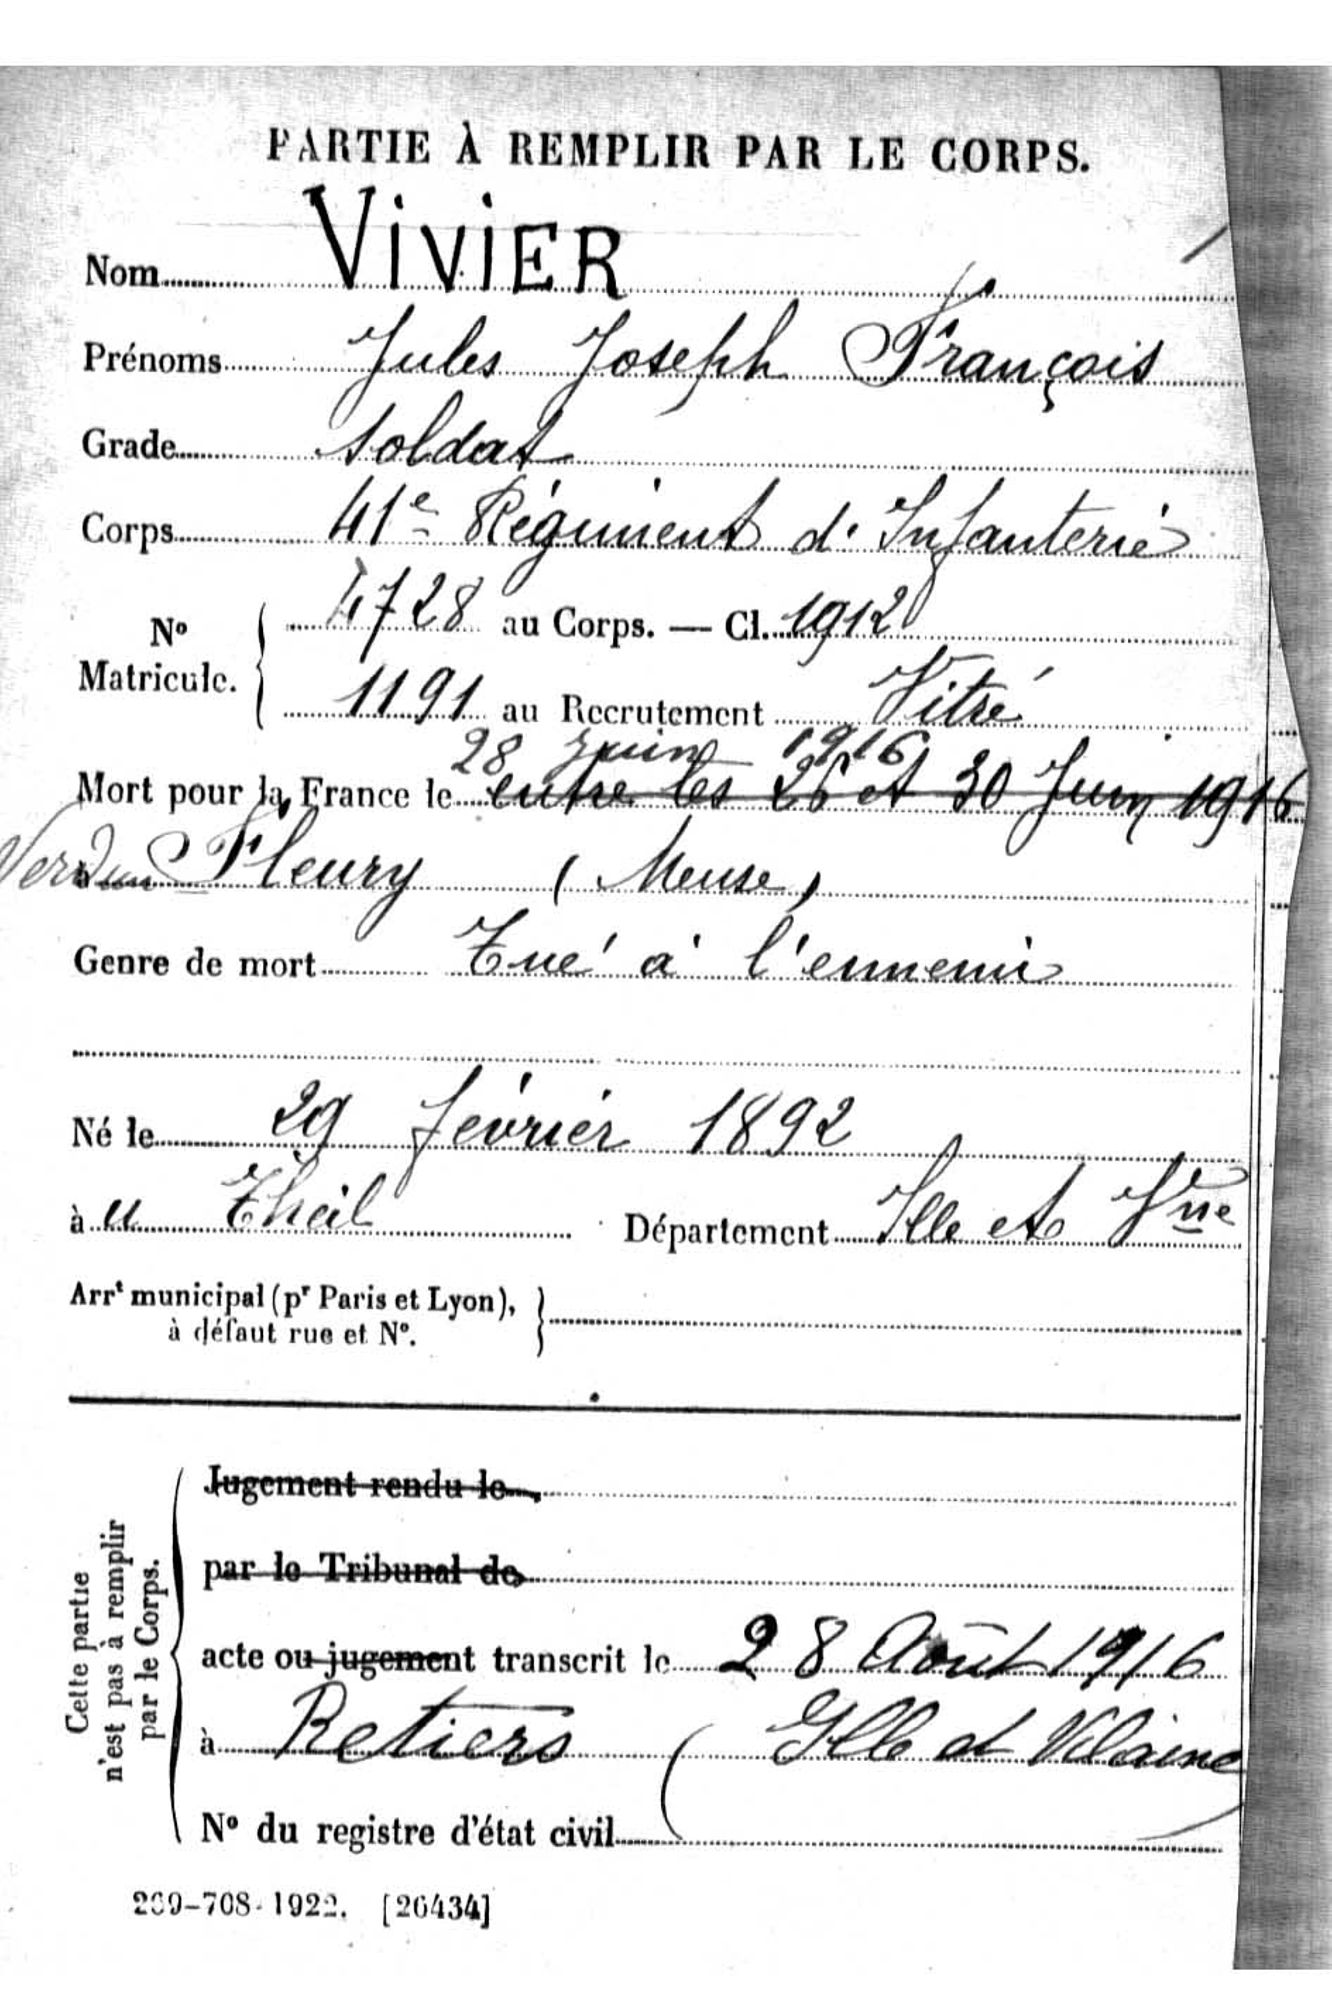 PARTIE À REMPLIR PAR LE CORPS.
Nom VIVIER
Prénoms Jules Joseph François
Grade soldat
Corps 41e Régiment d'Infanterie
No Matricule. { 4728 au Corps. — Cl. 1912
1191 au Recrutement Vitré
28 juin 1916
Mort pour la France le entre les 26 et 30 Juin 1916
Verdun Fleury (Meuse)
Genre de mort Tué à l'ennemi
Né le 29 février 1892
à Theil Département Ille et Vne
Arrt municipal (pr Paris et Lyon),
à défaut rue et No.
Cette partie
n'est pas à remplir
par le Corps.
Jugement rendu le
par le Tribunal de
acte ou jugement transcrit le 28 Août 1916
à Retiers (Ille et Vilaine)
No du registre d'état civil
269-708-1922. [26434]